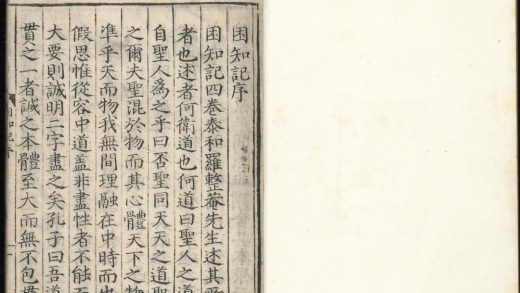 困知記序
困知記四卷泰和羅整菴先生述其
者也述者何衛道也何道曰聖人之道
自聖人爲之乎曰否聖同天天之道聖
之爾夫聖混於物而其心體天下之物
準乎天而物我無間理融在中時而出
假思惟從容中道盖非盡性者不能
大要則誠明二字盡之矣孔子曰吾道
貫之一者誠之本體至大而無不包
困知記